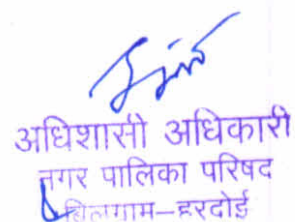 अधिशासी अधिकारी
नगर पालिका परिषद
बिलग्राम–हरदोई